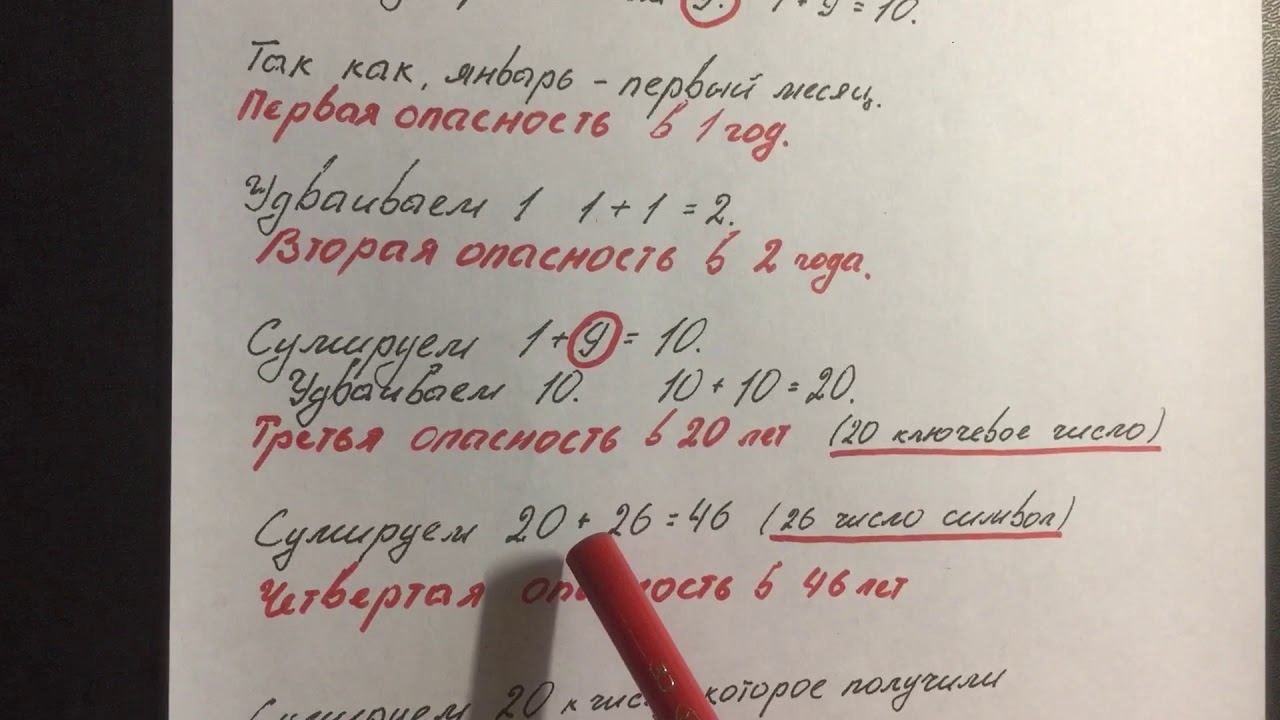 9. 1 + 9 = 10.
Так как, январь - первый месяц.
Первая опасность в 1 год.
Удваиваем 1 1 + 1 = 2.
Вторая опасность в 2 года.
Сумируем 1 + 9 = 10.
Удваиваем 10. 10 + 10 = 20.
Третья опасность в 20 лет (20 ключевое число)
Сумируем 20 + 26 = 46 (26 число символ)
Четвертая опасность в 46 лет
Сумируем 20 к числу которое получили